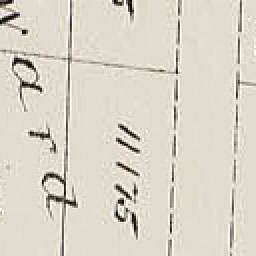 Ward
11175